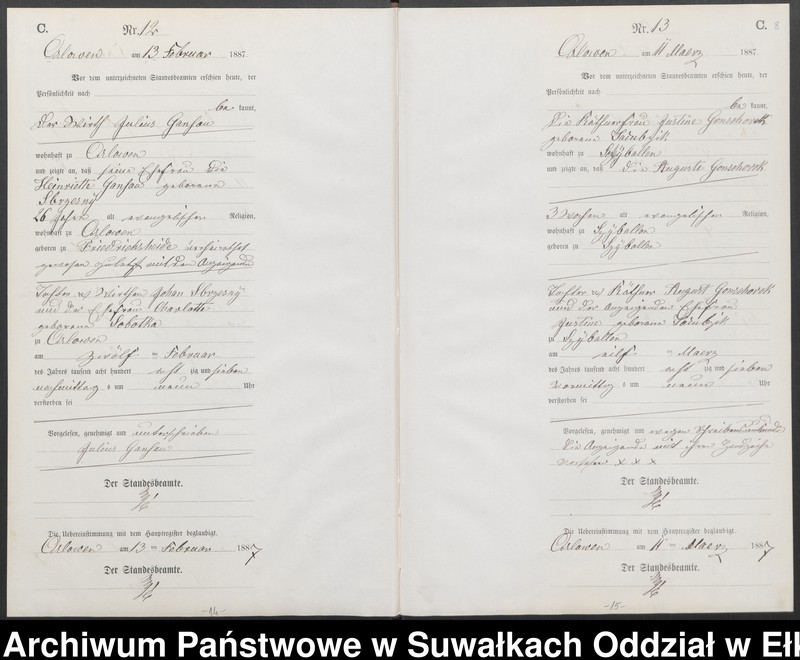 C. Nr. 12
Orlowen am 13 Februar 1887.
Vor dem unterzeichneten Standesbeamten erschien heute, der
Persönlichkeit nach
be kannt,
der Wirth Julius Gansau
wohnhaft zu Orlowen
und zeigte an, daß seine Ehefrau die
Heinriette Gansau geborene
Sbrzesny
26 Jahre alt evangelischer Religion,
wohnhaft zu Orlowen
geboren zu Friedrichsheide verheirathet
gewesen zuletzt mit dem Anzeigenden
Tochter des Wirthen Johan Sbrzesny
und der Ehefrau Charlotte
geborene Sobotka
zu Orlowen
am zwölf ten Februar
des Jahres tausend acht hundert acht zig und sieben
nachmittag s um neun Uhr
verstorben sei
Vorgelesen, genehmigt und unterschrieben
Julius Gansau
Der Standesbeamte.
Die Uebereinstimmung mit dem Hauptregister beglaubigt.
Orlowen am 13 ten Februar 1887
Der Standesbeamte.
-14-
Nr. 13 C. 8
Orlowen am 11 Maerz 1887
Vor dem unterzeichneten Standesbeamten erschien heute, der
Persönlichkeit nach
be kannt,
die Käthnerfrau Justine Gonschorek
geborene
wohnhaft zu Szyballen
und zeigte an, daß die Auguste Gonschorek
3 Wochen alt evangelischer Religion,
wohnhaft zu Szyballen
geboren zu Szyballen
Tochter des Käthner August Gonschorek
und der Anzeigenden Ehefrau
Justine geborene
zu Szyballen
am eilf ten Maerz
des Jahres tausend acht hundert acht zig und sieben
Vormittag s um neun Uhr
verstorben sei
Vorgelesen, genehmigt und wegen Schreibensunkunde
die Anzeigende mit ihrem Handzeichen
versehen x x x
Der Standesbeamte.
Die Uebereinstimmung mit dem Hauptregister beglaubigt.
Orlowen am 11 ten Maerz 1887
Der Standesbeamte.
-15-
Archiwum Państwowe w Suwałkach Oddział w Ełk